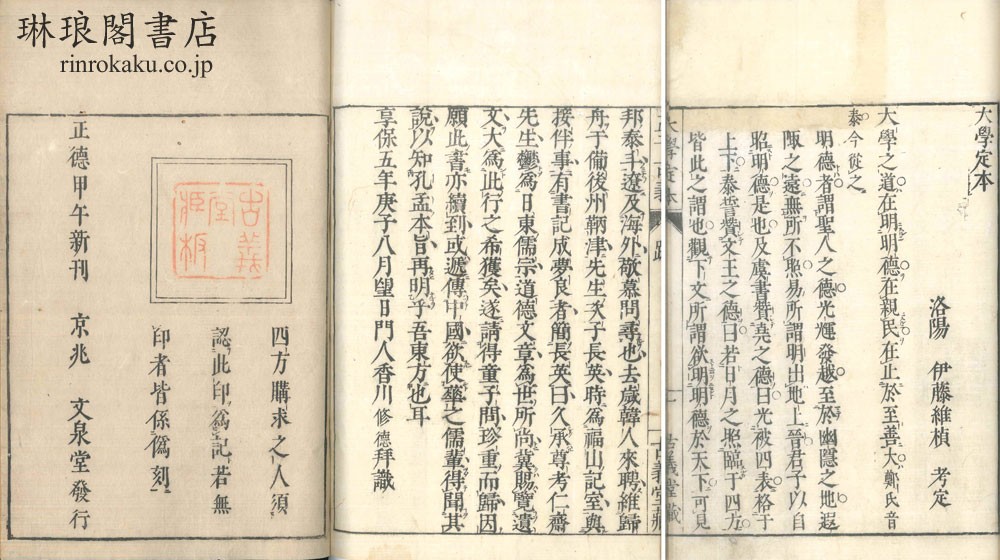 琳琅閣書店
rinrokaku.co.jp
大學定本
洛陽 伊藤維楨 考定
大學之道在明明德在親民在止於至善大鄭氏音
泰今從之
明德者謂聖人之德光輝發越至於幽隱之地遐
陬之遠無所不照易所謂明出地上晉君子以自
昭明德是也及虞書贊堯之德曰光被四表格于
上下泰誓贊文王之德曰若日月之照臨于四方
皆此之謂也觀下文所謂欲明明德於天下可見
大學定本
一
古義堂藏
跋
古義堂藏
邦泰手遼及海外敬慕問尋也去歲韓人來聘維歸
舟于備後州鞆津先生次子長英時為福山記室與
接伴事有書記成夢良者簡長英曰久承尊考仁齋
先生鬱為日東儒宗道德文章為世所尚冀賜覽遺
文大為此行之希獲矣遂請得童子問珍重而歸因
願此書亦續到或遞傳中國欲使華之儒輩得聞其
說以知孔孟本旨再明乎吾東方也耳
享保五年庚子八月望日門人香川修德拜識
古義
堂
藏板
四方購求之人須
認此印為記若無
印者皆係偽刻
正德甲午新刊 京兆 文泉堂發行